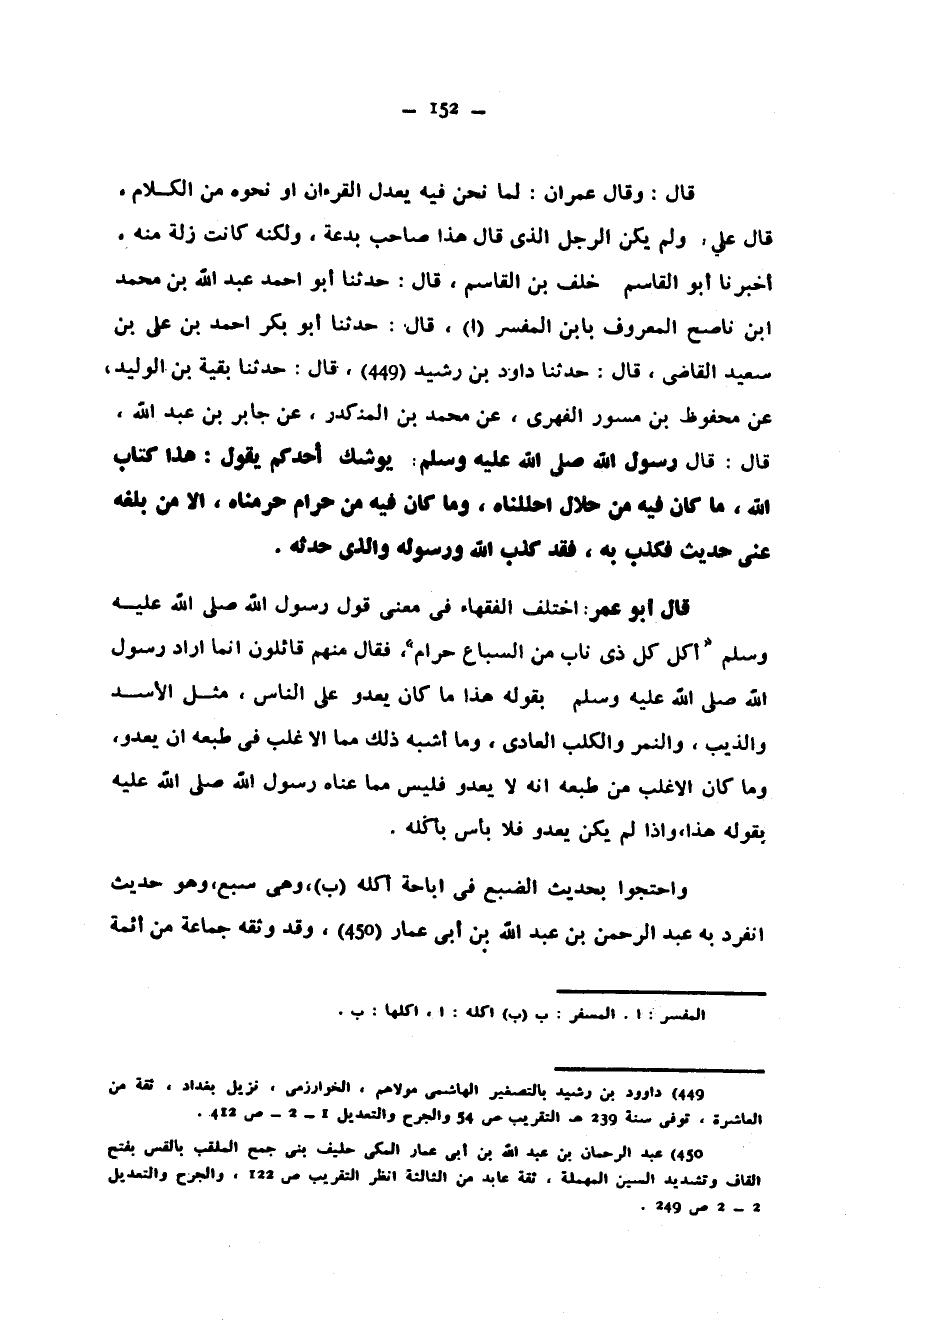 — 152 —
قال : وقال عمران : لما نحن فيه يعدل القرءان او نحوه من الكلام ،
قال علي ، ولم يكن الرجل الذى قال هذا صاحب بدعة ، ولكنه كانت زلة منه .
أخبرنا أبو القاسم خلف بن القاسم ، قال : حدثنا أبو احمد عبد الله بن محمد
ابن ناصح المعروف بابن المفسر (ا) ، قال : حدثنا أبو بكر احمد بن على بن
سعيد القاضى ، قال : حدثنا داود بن رشيد (449) ، قال : حدثنا بقية بن الوليد،
عن محفوظ بن مسور الفهرى ، عن محمد بن المنكدر ، عن جابر بن عبد الله ،
قال : قال رسول الله صلى الله عليه وسلم: يوشك أحدكم يقول : هذا كتاب
الله ، ما كان فيه من حلال احللناه ، وما كان فيه من حرام حرمناه ، الا من بلغه
عنى حديث فكذب به ، فقد كذب الله ورسوله والذى حدثه .
قال أبو عمر: اختلف الفقهاء فى معنى قول رسول الله صلى الله عليه
وسلم "أكل كل ذى ناب من السباع حرام"، فقال منهم قائلون انما اراد رسول
الله صلى الله عليه وسلم بقوله هذا ما كان يعدو على الناس ، مثل الأسد
والذيب ، والنمر والكلب العادى ، وما أشبه ذلك مما الاغلب فى طبعه ان يعدو،
وما كان الاغلب من طبعه انه لا يعدو فليس مما عناه رسول الله صلى الله عليه
بقوله هذا،واذا لم يكن يعدو فلا بأس بأكله .
واحتجوا بحديث الضبع فى اباحة أكله (ب)،وهى سبع،وهو حديث
انفرد به عبد الرحمن بن عبد الله بن أبى عمار (450) ، وقد وثقه جماعة من أئمة
المفسر : ا . المسفر : ب (ب) اكله : ا ، اكلها : ب .
449) داوود بن رشيد بالتصغير الهاشمى مولاهم ، الخوارزمى ، نزيل بغداد ، ثقة من
العاشرة ، توفى سنة 239 هـ التقريب ص 54 والجرح والتعديل 1 – 2 – ص 412 .
450) عبد الرحمان بن عبد الله بن أبى عمار المكى حليف بنى جمح الملقب بالقس بفتح
القاف وتشديد السين المهملة ، ثقة عابد من الثالثة انظر التقريب ص 122 ، والجرح والتعديل
2 – 2 ص 249 .